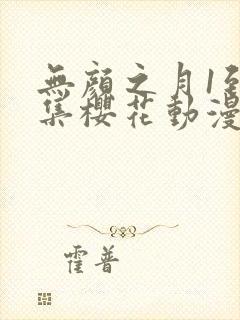 無顏之月1至
集櫻花動漫
霍普